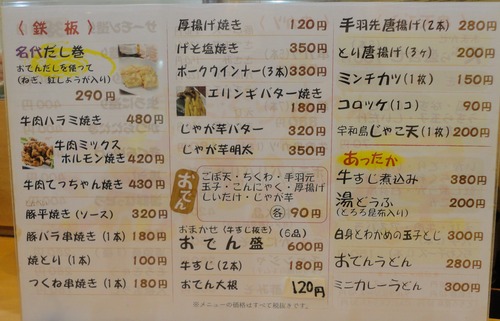 〈鉄板〉
名代だし巻
おでんだしを使って
(ねぎ、紅しょうが入り)
290円
牛肉ハラミ焼き 480円
牛肉ミックス
ホルモン焼き 420円
牛肉てっちゃん焼き 430円
豚平焼き(ソース) 320円
豚バラ串焼き(1本) 180円
焼とり(1本) 100円
つくね串焼き(1本) 180円
厚揚げ焼き 120円
げそ塩焼き 350円
ポークウインナー(3本) 330円
エリンギバター焼き
180円
じゃが芋バター 320円
じゃが芋明太 350円
おでん
ごぼ天・ちくわ・手羽元
玉子・こんにゃく・厚揚げ
しいたけ・じゃが芋
各 90円
おまかせ(牛すじ抜き)(6品)
おでん盛 600円
牛すじ(2本) 180円
おでん大根 120円
※メニューの価格はすべて税抜きです。
手羽先唐揚げ(2本) 280円
とり唐揚げ(3ヶ) 200円
ミンチカツ(1枚) 150円
コロッケ(1コ) 90円
宇和島じゃこ天(1枚) 200円
あったか
牛すじ煮込み 380円
湯どうふ 200円
(とろろ昆布入り)
白身とわかめの玉子とじ 300円
おでんうどん 280円
ミニカレーうどん 300円